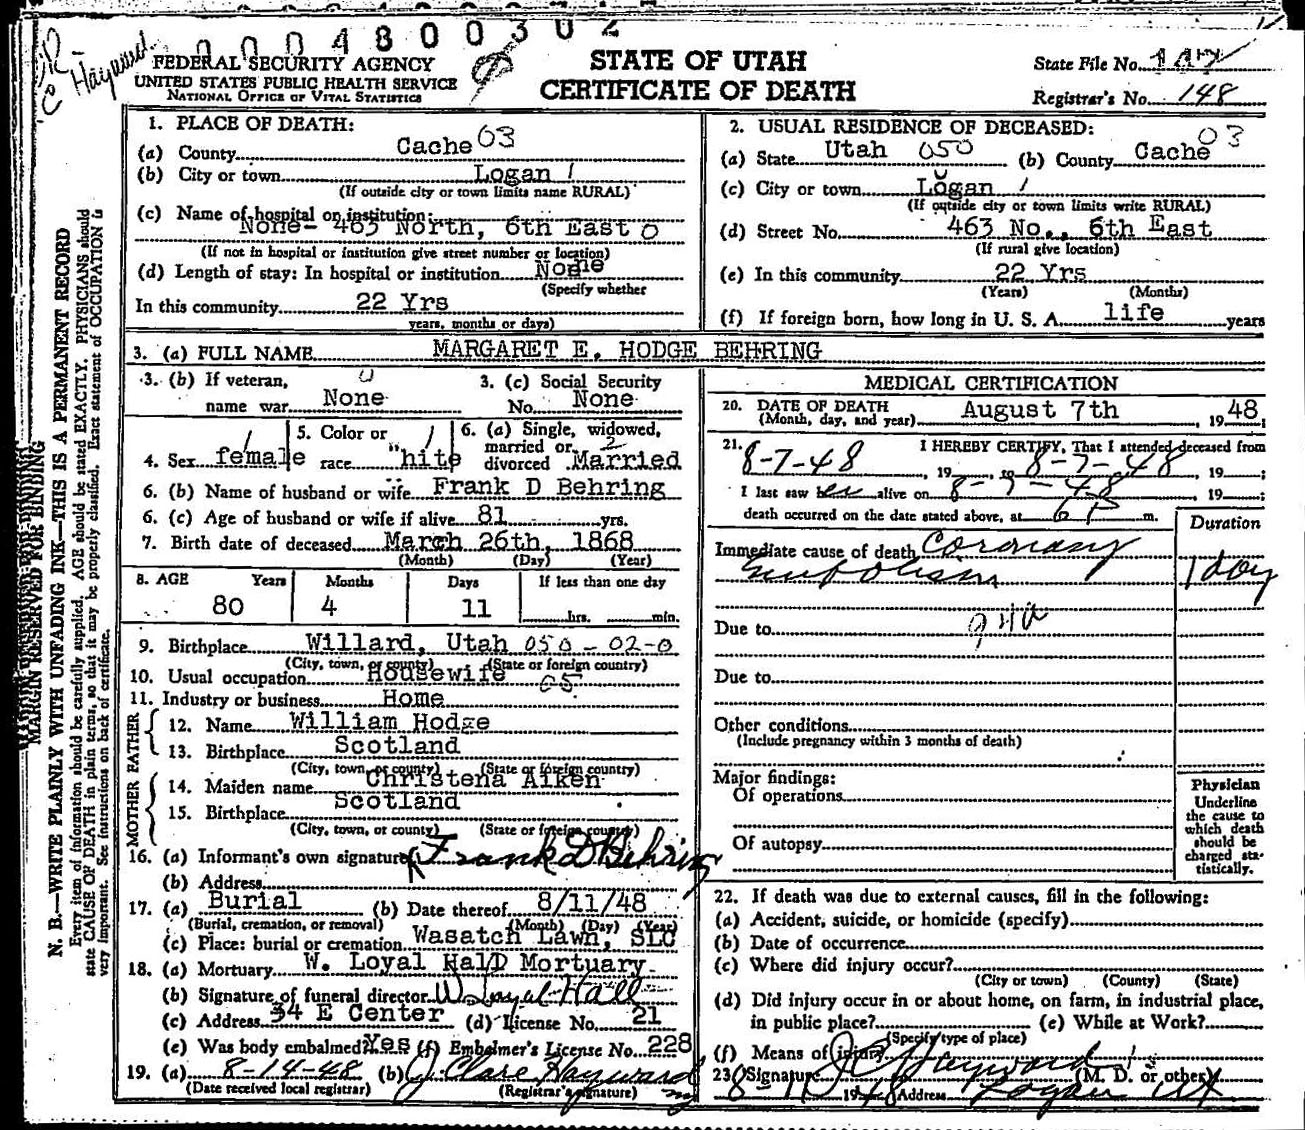 0004800302
FEDERAL SECURITY AGENCY
UNITED STATES PUBLIC HEALTH SERVICE
NATIONAL OFFICE OF VITAL STATISTICS
STATE OF UTAH
CERTIFICATE OF DEATH
State File No.
Registrar's No. 148
MARGIN RESERVED FOR BINDING
N. B.—WRITE PLAINLY WITH UNFADING INK—THIS IS A PERMANENT RECORD
Every item of information should be carefully supplied. AGE should be stated EXACTLY. PHYSICIANS should
state CAUSE OF DEATH in plain terms, so that it may be properly classified. Exact statement of OCCUPATION is
very important. See instructions on back of certificate.
1. PLACE OF DEATH:
(a) County Cache 03
(b) City or town Logan 1
(If outside city or town limits name RURAL)
(c) Name of hospital or institution:
None- 463 North, 6th East 0
(If not in hospital or institution give street number or location)
(d) Length of stay: In hospital or institution None
(Specify whether
In this community 22 Yrs
years, months or days)
2. USUAL RESIDENCE OF DECEASED:
(a) State Utah 050 (b) County Cache 03
(c) City or town Logan 1
(If outside city or town limits write RURAL)
(d) Street No. 463 No., 6th East
(If rural give location)
(e) In this community 22 Yrs
(Years) (Months)
(f) If foreign born, how long in U. S. A. life years
3. (a) FULL NAME MARGARET E. HODGE BEHRING
3. (b) If veteran, 0
name war None
3. (c) Social Security
No. None
4. Sex female 1
5. Color or 1
race "hite
6. (a) Single, widowed,
married or 2
divorced Married
6. (b) Name of husband or wife Frank D Behring
6. (c) Age of husband or wife if alive 81 yrs.
7. Birth date of deceased March 26th, 1868
(Month) (Day) (Year)
8. AGE Years Months Days If less than one day
80 4 11 hrs. min.
9. Birthplace Willard, Utah 050-02-0
(City, town, or county) (State or foreign country)
10. Usual occupation Housewife 05
11. Industry or business Home
FATHER
12. Name William Hodge
13. Birthplace Scotland
(City, town, or county) (State or foreign country)
MOTHER
14. Maiden name Christena Aiken
15. Birthplace Scotland
(City, town, or county) (State or foreign country)
16. (a) Informant's own signature Frank D Behring
(b) Address
17. (a) Burial (b) Date thereof 8/11/48
(Burial, cremation, or removal) (Month) (Day) (Year)
(c) Place: burial or cremation Wasatch Lawn, SLC
18. (a) Mortuary W. Loyal Hall Mortuary
(b) Signature of funeral director W. Loyal Hall
(c) Address 34 E Center (d) License No. 21
(e) Was body embalmed? Yes (f) Embalmer's License No. 228
19. (a) 8-14-48 (b) J. Clare Hayward
(Date received local registrar) (Registrar's signature)
MEDICAL CERTIFICATION
20. DATE OF DEATH
(Month, day, and year) August 7th, 1948
21. I HEREBY CERTIFY, That I attended deceased from
8-7-48, 19 to 8-7-48, 19 ;
I last saw her alive on 8-7-48, 19 ;
death occurred on the date stated above, at 6 P m.
Duration
Immediate cause of death Coronary
Embolism 1 day
Due to 94a
Due to
Other conditions
(Include pregnancy within 3 months of death)
Major findings:
Of operations
Of autopsy
Physician
Underline
the cause to
which death
should be
charged sta-
tistically.
22. If death was due to external causes, fill in the following:
(a) Accident, suicide, or homicide (specify)
(b) Date of occurrence
(c) Where did injury occur?
(City or town) (County) (State)
(d) Did injury occur in or about home, on farm, in industrial place,
in public place? (e) While at Work?
(Specify type of place)
(f) Means of injury
23. Signature J C Hayward (M. D. or other)
8-11 1948 Address Logan Ut